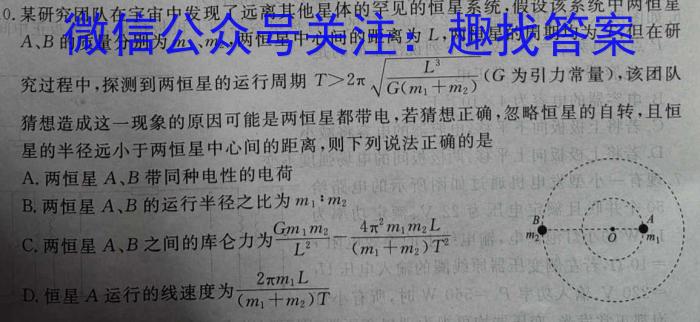 0.某研究团队在宇宙中发现了远离其他星体的罕见的恒星系统,假设该系统中两恒星
A、B的质量分别为m₁、m₂,两恒星中心间的距离为L,
但在研
微信公众号关注:趣找答案
究过程中,探测到两恒星的运行周期 T>2π√(L³/G(m₁+m₂))(G为引力常量),该团队
猜想造成这一现象的原因可能是两恒星都带电,若猜想正确,忽略恒星的自转,且恒
星的半径远小于两恒星中心间的距离,则下列说法正确的是
A.两恒星A、B带同种电性的电荷
B.两恒星A、B的运行半径之比为m₁:m₂
C.两恒星A、B之间的库仑力为Gm₁m₂/L²-4π²m₁m₂L/(m₁+m₂)T²
D.恒星A运行的线速度为2πm₁L/(m₁+m₂)T
B
A
m₂
O
m₁